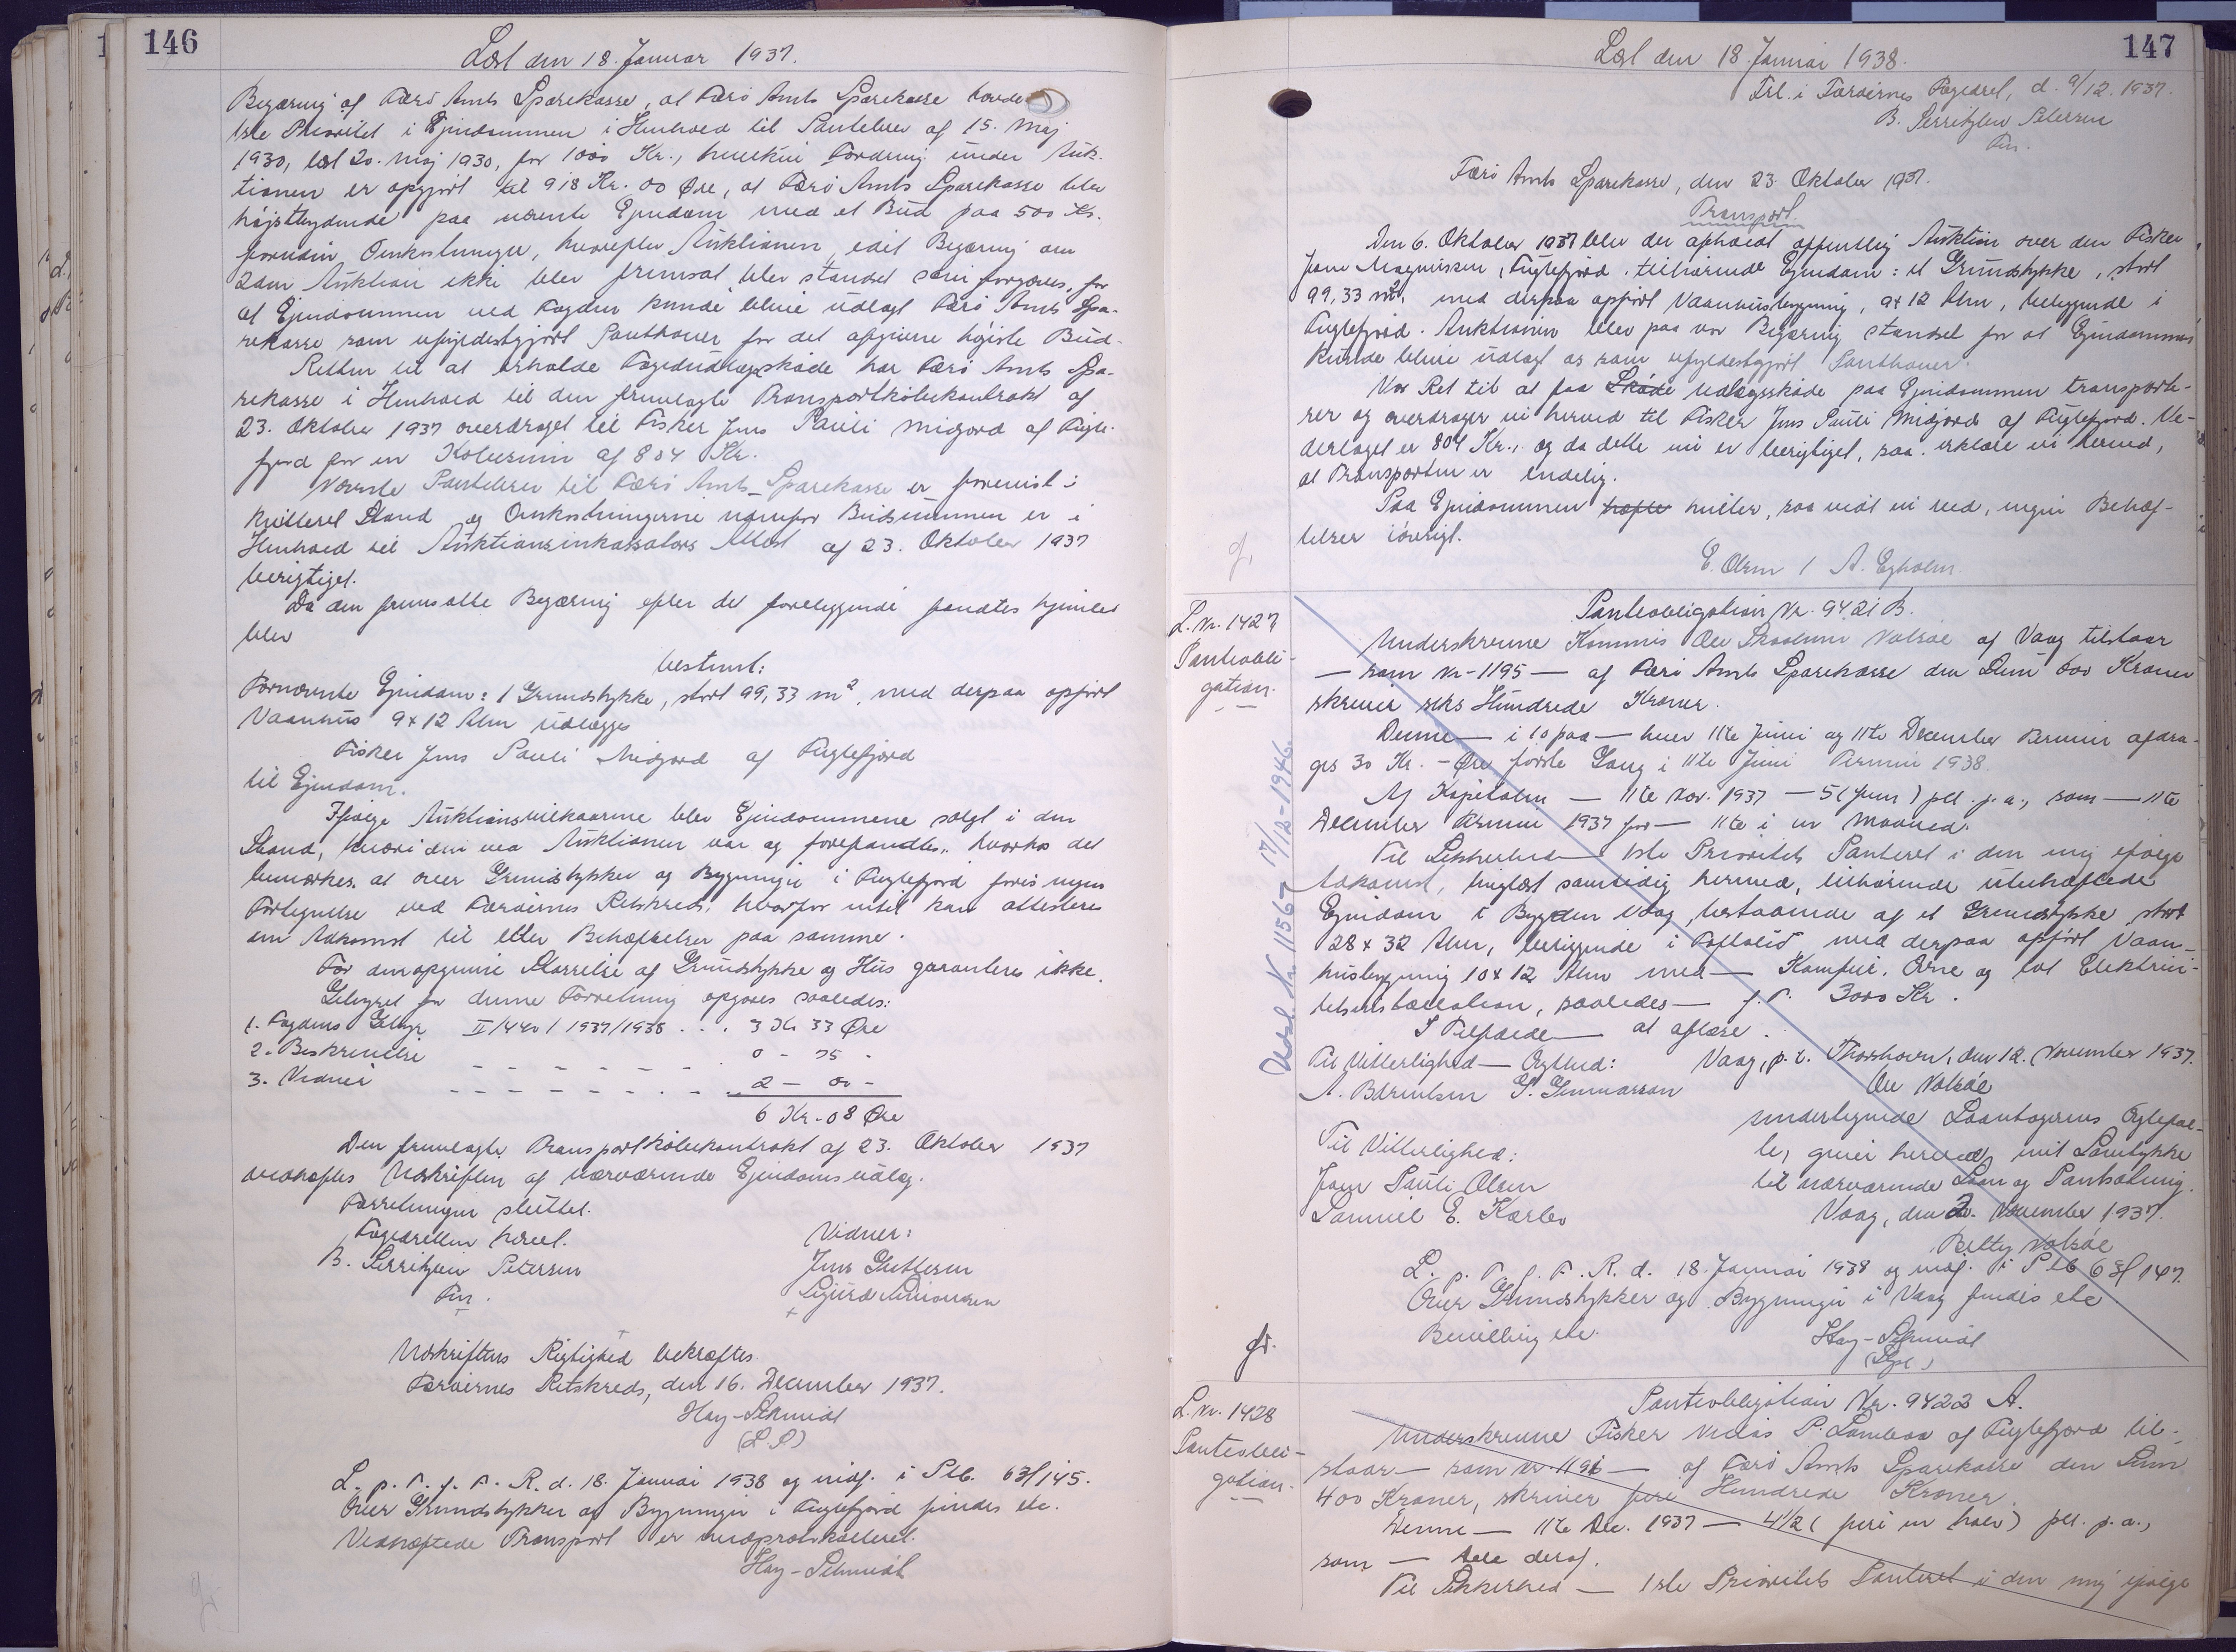 146
Læst den 18. Januar 1937.
Begæring af Færø Amts Sparekasse, at Færø Amts Sparekasse havde
1ste Prioritet i Ejendommen i Henhold til Pantebrev af 15. Maj
1930, læst 20. Maj 1930, for 1000 Kr., hvilken Fordring under Auk-
tionen er opgjort til 918 Kr. 00 Øre, at Færø Amts Sparekasse blev
højstbydende paa nævnte Ejendom med et Bud paa 500 Kr.
foruden Omkostninger, hvorefter Auktionen, idet Begæring om
2den Auktion ikke blev fremsat, blev standset som forgæves, for
at Ejendommen ved Fogden kunde blive udlagt Færø Amts Spa-
rekasse som ufyldestgjort Panthaver for det afgivne højeste Bud-
Retten til at erholde Fogedudlægsskøde har Færø Amts Spa-
rekasse i Henhold til den fremlagte Transportkøbekontrakt af
23. Oktober 1937 overdraget til Fisker Jens Pauli Midjord af Fugle-
fjord for en Købesum af 804 Kr.
Nævnte Pantebrev til Færø Amts Sparekasse er forevist i
kvitteret Stand og Omkostningerne udenfor Budsummen er i
Henhold til Auktionsinkassators Attest af 23. Oktober 1937
berigtiget.
Da den fremsatte Begæring efter det foreliggende fandtes hjemlet
blev
bestemt:
Fornævnte Ejendom: 1 Grundstykke, stort 99,33 m², med derpaa opført
Vaanhus 9 x 12 Alen udlægges
Fisker Jens Pauli Midjord af Fuglefjord
til Ejendom.
Ifølge Auktionsvilkaarene blev Ejendommene solgt i den
Stand, hvori den ved Auktionen var og forefandtes, hvorhos det
bemærkes at over Grundstykker og Bygninger i Fuglefjord føres ingen
Fortegnelse ved Færøernes Retskreds, hvorfor intet kan attesteres
om Adkomst til eller Behæftelser paa samme.
For den opgivne Størrelse af Grundstykke og Hus garanteres ikke.
Gebyret for denne Forretning opgøres saaledes:
1. Fogdens Gebyr II/440/1937/1938 . . . 3 Kr 33 Øre
2. Beskrivelse - - - - - - 0 - 75 -
3. Vidner - - - - - - 2 - 00 -
6 Kr. 08 Øre
Den fremlagte Transportkøbekontrakt af 23. Oktober 1937
vedhæftes Udskriften af nærværende Ejendomsudlæg.
Forretningen sluttet.
Fogedretten hævet.
B. Serritzlew Petersen
Fm.
Vidner:
Jens Guttesen
Sigurd Simonsen
Udskriftens Rigtighed bekræftes.
Færøernes Retskreds, den 16. December 1937.
Hay-Schmidt
(L.S)
L. p. T. f. F. R. d. 18. Januar 1938 og indf. i Ptb. 63f 145.
Over Grundstykker og Bygninger i Fuglefjord findes etc.
Vedhæftede Transport er medprotokolleret.
Hay-Schmidt
147
Læst den 18. Januar 1938.
Frl. i Færøernes Fogedret, d. 9/12. 1937.
B. Serritzlew Petersen
Fm.
Færø Amts Sparekasse, den 23. Oktober 1937.
Transport.
Den 6. Oktober 1937 blev der afholdt offentlig Auktion over den Fisker
Jens Magnussen, Fuglefjord, tilhørende Ejendom: et Grundstykke, stort
99,33 m², med derpaa opført Vaanhusbygning, 9x12 Alen, beliggende i
Fuglefjord. Auktionen blev paa vor Begæring standset for at Ejendommen
kunde blive udlagt os som ufyldestgjort Panthaver.
Vor Ret til at faa Skøde udlægsskøde paa Ejendommen transporte-
rer og overdrager vi herved til Fisker Jens Pauli Midjord af Fuglefjord. Ve-
derlaget er 804 Kr., og da dette nu er berigtiget, saa erklære vi herved,
at Transporten er endelig.
Paa Ejendommen hæfte hviler, saa vidt vi ved, ingen Behæf-
telser iøvrigt.
E. Olsen / A. Egholm
L. Nr. 1427
Panteobli-
gation.
Panteobligation Nr. 9421 B.
Underskrevne Kommis Ole Vatsøe af Vaag tilstaar
— som Nr-1195 — af Færø Amts Sparekasse den Sum 600 Kroner
skriver seks Hundrede Kroner.
Denne — i 10 paa — hver 11te Juni og 11te December Termin afdra-
ges 30 Kr. - Øre første Gang i 11te Juni Termin 1938.
Af Kapitalen — 11te Nov. 1937 — 5 (fem) pct. p.a., som — 11te
December Termin 1937 for — 11te i en Maaned.
Til Sikkerhed — 1ste Prioritets Panteret i den mig ifølge
Adkomst, tinglæst samtidig hermed, tilhørende ubehæftede
Ejendom i Bygden Vaag, bestaaende af et Grundstykke, stort
28 x 32 Alen, beliggende i med derpaa opført Vaan-
husbygning 10 x 12 Alen med — Komfur, Ovne og fast Elektrici-
tetsinstallation, saaledes — f. T. 3000 Kr.
I Tilfælde — at aflæse.
Til Vitterlighed — Ægthed:
A. Berentsen G. Gunnarsson
Vaag, p. t. Thorshavn, den 12. November 1937.
Ole Vatsøe
Til Vitterlighed:
Jens Pauli Olsen
Samuel E. Karlev
undertegnede Laantagerens Ægtefæl-
le, giver herved mit Samtykke
til nærværende Laan og Pantsætning.
Vaag, den 2. November 1937.
Betty Vatsøe
L. p. T. f. F. R. d. 18. Januar 1938 og indf. i Ptb 63f 147.
Over Grundstykker og Bygninger i Vaag findes etc
Bevilling etc.
Hay-Schmidt
Aflæst. Nr. 11556 17/12-1946.
L. Nr. 1428
Panteobli-
gation.
Panteobligation Nr. 9422 A.
Underskrevne Fisker P. Lamhauge af Fuglefjord til-
staar — som Nr. 1196 — af Færø Amts Sparekasse den Sum
400 Kroner, skriver fire Hundrede Kroner.
Denne — 11te Dec. 1937 — 4½ (fire en halv) pct. p.a.,
som — hele deraf.
Til Sikkerhed — 1ste Prioritets Panteret i den mig ifølge